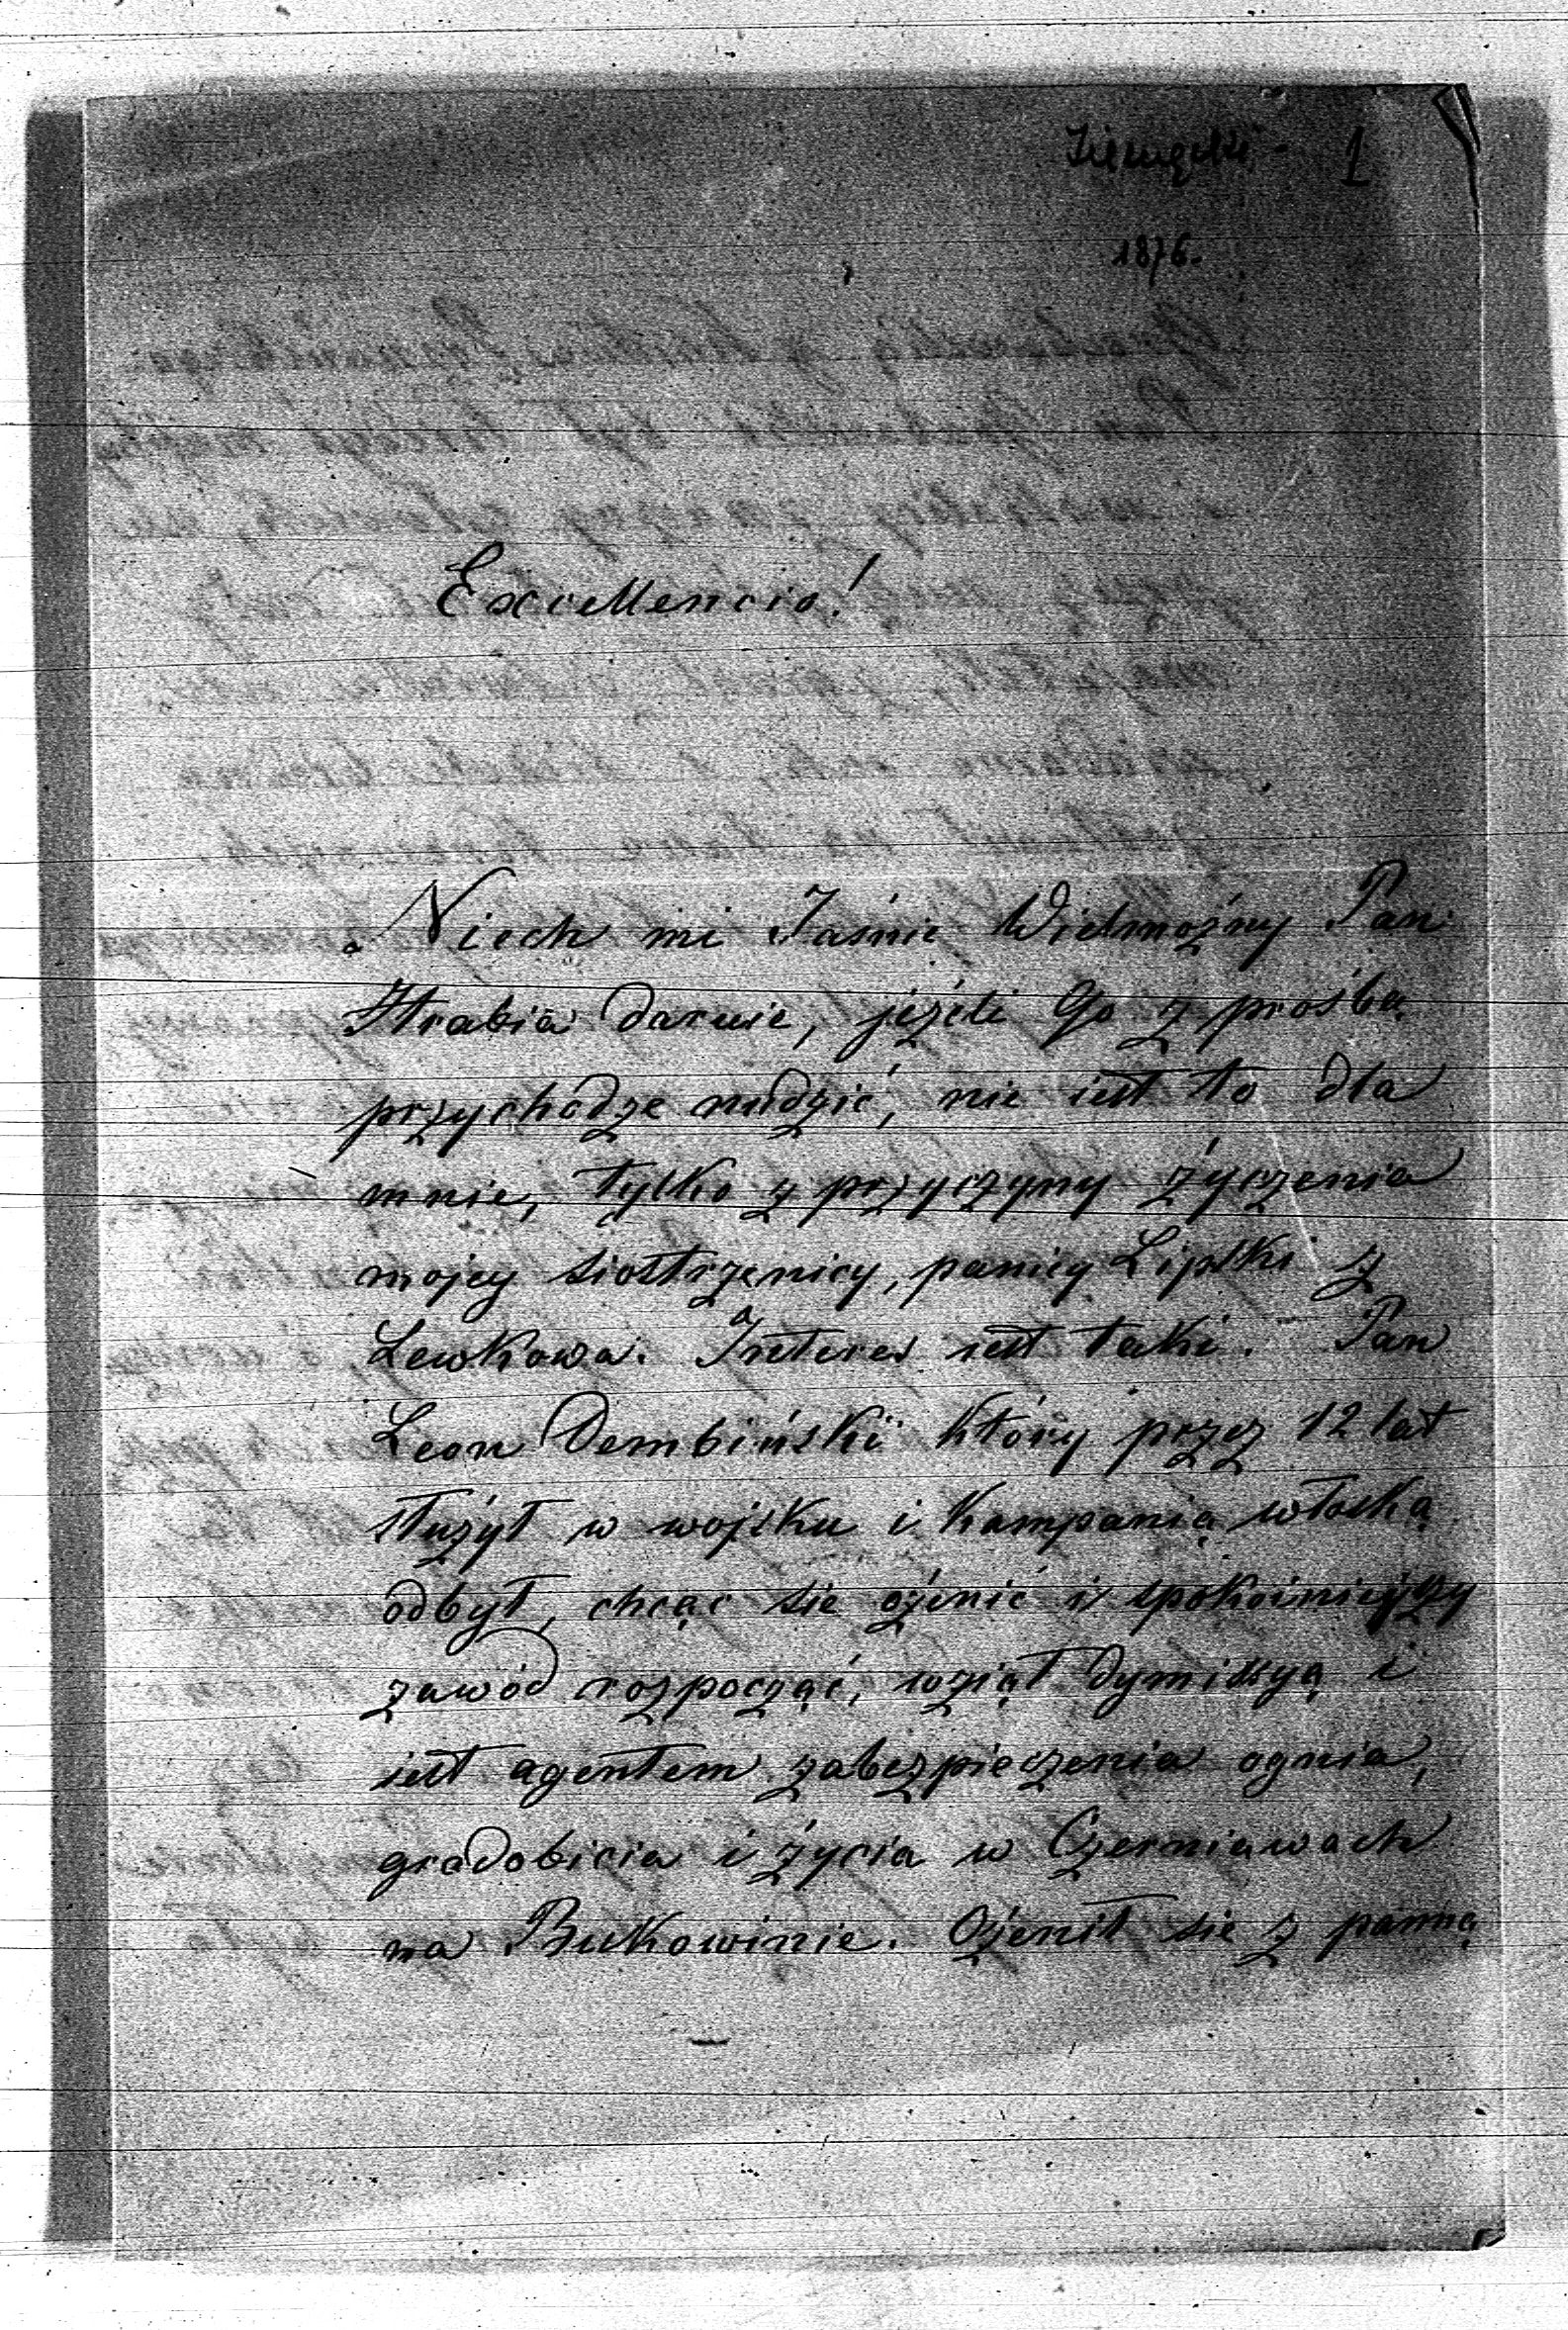 1
1876.
Excellencio!
Niech mi Jaśnie Wielmożny Pan
Hrabia daruie, jeżeli Go z prośbą
przychodze nudzić, nie iest to dla
mnie, tylko z przyczyny życzenia
mojey siostrzenicy, paniey Lipski z
Lewkowa. Interes iest taki. Pan
Leon Dembiński który przez 12 lat
służył w wojsku i kampanią włoską
odbył, chcąc sie ożenić i spokoinieyszy
zawód rozpocząć, wziął dymissyą i
iest agentem zabezpieczenia ognia,
gradobicia i życia w Czerniawach
na Bukowinie. Ożenił sie z panną